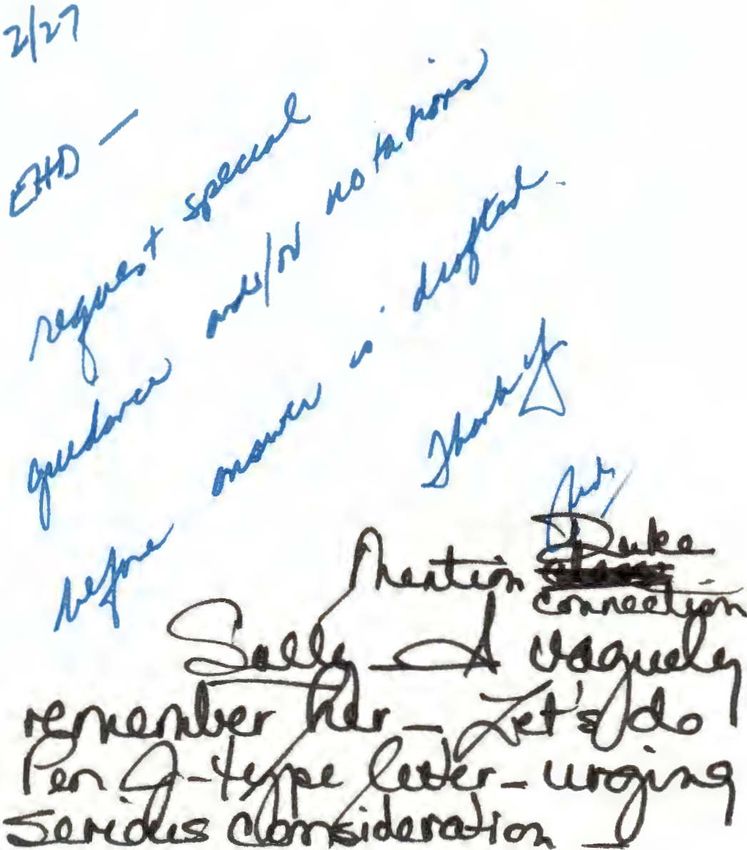 2/27
EHD —
request special
guidance and/or notations
before answer is drafted.
Thank you
Mention Duke
connection
Sally — I vaguely
remember her — Let's do
Pen G-type letter — urging
serious consideration —